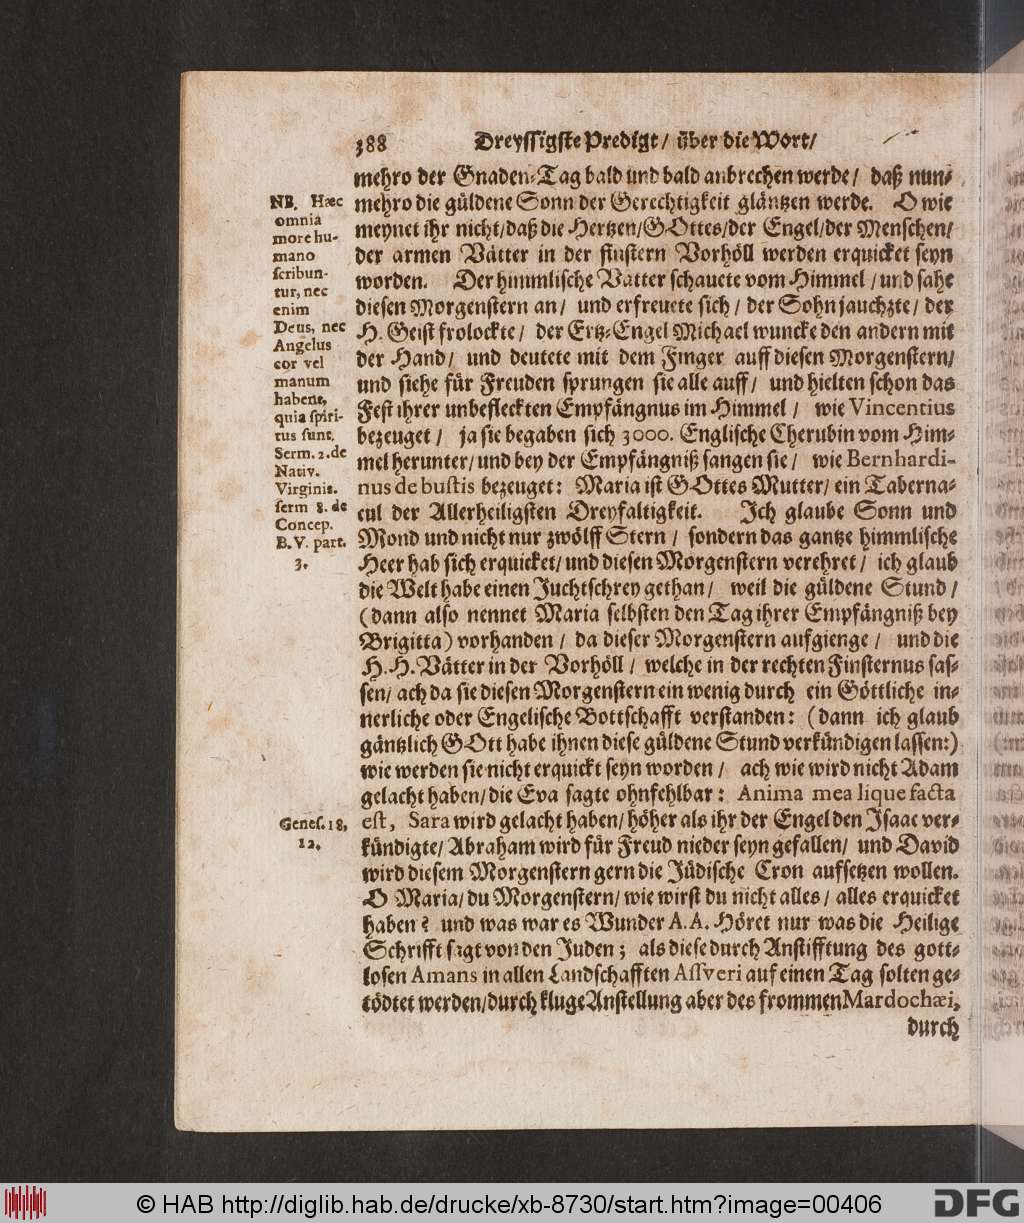 388 Dreyssigste Predigt / über die Wort /
mehro der Gnaden-Tag bald und bald anbrechen werde / daß nun-
mehro die güldene Sonn der Gerechtigkeit gläntzen werde. O wie
meynet ihr nicht / daß die Hertzen / GOttes / der Engel / der Menschen /
der armen Vätter in der finstern Vorhöll werden erquicket seyn
worden. Der himmlische Vatter schauete vom Himmel / und sahe
diesen Morgenstern an / und erfreuete sich / der Sohn jauchzte / der
H. Geist frolockte / der Ertz-Engel Michael wuncke den andern mit
der Hand / und deutete mit dem Finger auff diesen Morgenstern /
und siehe für Freuden sprungen sie alle auff / und hielten schon das
Fest ihrer unbefleckten Empfängnus im Himmel / wie Vincentius
bezeuget / ja sie begaben sich 3000. Englische Cherubin vom Him-
mel herunter / und bey der Empfängniß sangen sie / wie Bernhardi-
nus de bustis bezeuget: Maria ist GOttes Mutter / ein Taberna-
cul der Allerheiligsten Dreyfaltigkeit. Ich glaube Sonn und
Mond und nicht nur zwölff Stern / sondern das gantze himmlische
Heer hab sich erquicket / und diesen Morgenstern verehret / ich glaub
die Welt habe einen Juchtschrey gethan / weil die güldene Stund /
(dann also nennet Maria selbsten den Tag ihrer Empfängniß bey
Brigitta) vorhanden / da dieser Morgenstern aufgienge / und die
H. H. Vätter in der Vorhöll / welche in der rechten Finsternus sas-
sen / ach da sie diesen Morgenstern ein wenig durch ein Göttliche in-
nerliche oder Engelische Bottschafft verstanden: (dann ich glaub
gäntzlich GOtt habe ihnen diese güldene Stund verkündigen lassen:)
wie werden sie nicht erquickt seyn worden / ach wie wird nicht Adam
gelacht haben / die Eva sagte ohnfehlbar: Anima mea lique facta
est, Sara wird gelacht haben / höher als ihr der Engel den Isaac ver-
kündigte / Abraham wird für Freud nieder seyn gefallen / und David
wird diesem Morgenstern gern die Jüdische Cron aufsetzen wollen.
O Maria / du Morgenstern / wie wirst du nicht alles / alles erquicket
haben? und was war es Wunder A. A. Höret nur was die Heilige
Schrifft sagt von den Juden; als diese durch Anstifftung des gott-
losen Amans in allen Landschafften Assveri auf einen Tag solten ge-
tödtet werden / durch kluge Anstellung aber des frommen Mardochæi,
durch
NB. Hæc
omnia
more hu-
mano
scribun-
tur, nec
enim
Deus, nec
Angelus
cor vel
manum
habent,
quia spiri-
tus sunt.
Serm. 2. de
Nativ.
Virginis.
serm 8. de
Concep.
B. V. part.
3.
Genes. 18,
12.
© HAB http://diglib.hab.de/drucke/xb-8730/start.htm?image=00406
DFG